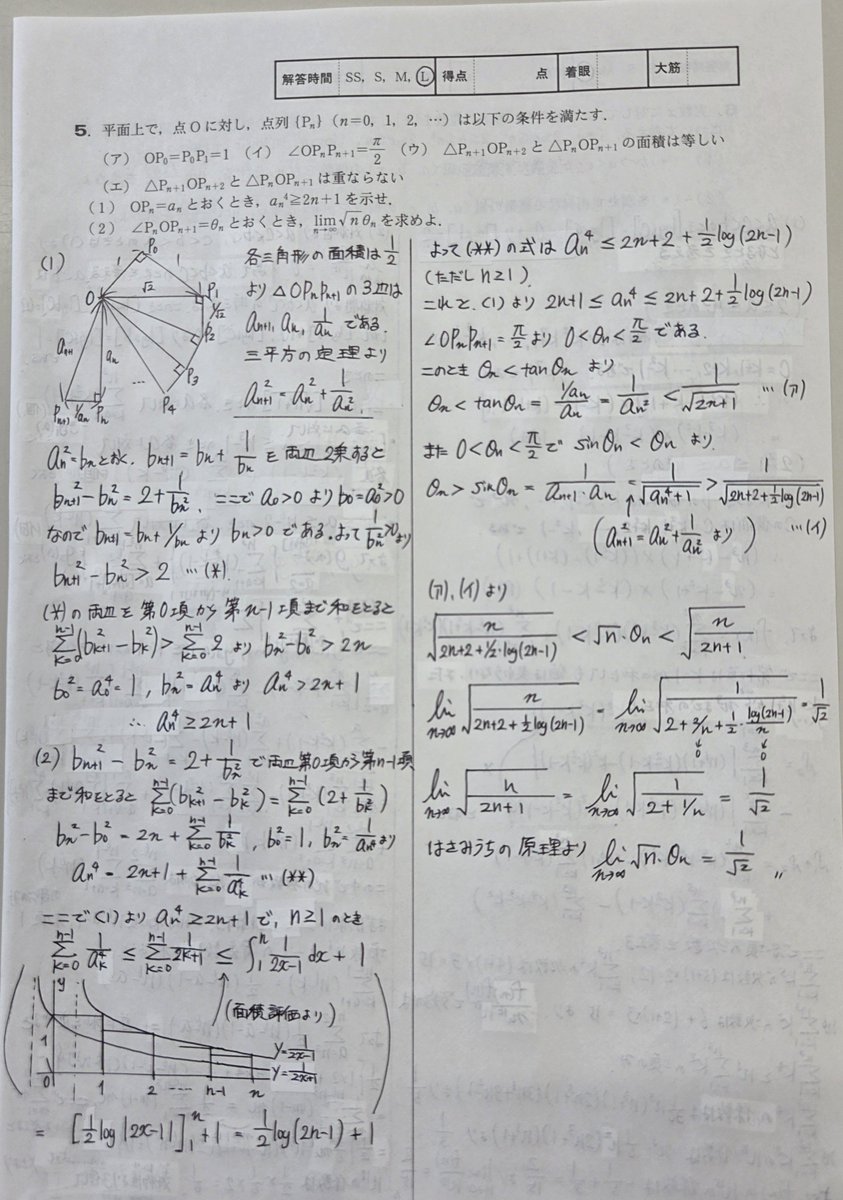 解答時間 SS, S, M, L 得点 点 着眼 大筋
5. 平面上で，点Oに対し，点列{Pₙ}（n=0，1，2，…）は以下の条件を満たす．
（ア） OP₀=P₀P₁=1 （イ） ∠OPₙPₙ₊₁=π/2 （ウ） △Pₙ₊₁OPₙ₊₂と△PₙOPₙ₊₁の面積は等しい
（エ） △Pₙ₊₁OPₙ₊₂と△PₙOPₙ₊₁は重ならない
（1） OPₙ=aₙとおくとき，aₙ⁴≧2n+1を示せ．
（2） ∠PₙOPₙ₊₁=θₙとおくとき，lim n→∞ √n θₙを求めよ．
(1)
1 P₀ 1
O √2 P₁
1/√2
P₂
P₃
P₄
aₙ₊₁ aₙ …
Pₙ₊₁ 1/aₙ Pₙ
各三角形の面積は 1/2
より △OPₙPₙ₊₁の3辺は
aₙ₊₁, aₙ, 1/aₙ である.
三平方の定理より
aₙ₊₁² = aₙ² + 1/aₙ².
aₙ²=bₙとおく. bₙ₊₁ = bₙ + 1/bₙ を両辺2乗すると
bₙ₊₁² − bₙ² = 2 + 1/bₙ². ここで a₀>0 より b₀=a₀²>0
なので bₙ₊₁ = bₙ + 1/bₙ より bₙ>0 である. よって 1/bₙ²>0 より
bₙ₊₁² − bₙ² > 2 …(*).
(*)の両辺を第0項から第n−1項まで和をとると
Σ[k=0,n−1](bₖ₊₁² − bₖ²) > Σ[k=0,n−1] 2 より bₙ² − b₀² > 2n
b₀² = a₀⁴ = 1, bₙ² = aₙ⁴ より aₙ⁴ > 2n+1
∴ aₙ⁴ ≥ 2n+1
(2) bₙ₊₁² − bₙ² = 2 + 1/bₙ² で両辺第0項から第n−1項
まで和をとると Σ[k=0,n−1](bₖ₊₁² − bₖ²) = Σ[k=0,n−1](2 + 1/bₖ²)
bₙ² − b₀² = 2n + Σ[k=0,n−1] 1/bₖ², b₀²=1, bₙ² = 1/aₙ⁴ より
aₙ⁴ = 2n+1 + Σ[k=0,n−1] 1/aₖ⁴ …(**)
ここで(1)より aₙ⁴ ≥ 2n+1 で, n≥1 のとき
Σ[k=0,n−1] 1/aₖ⁴ ≤ Σ[k=0,n−1] 1/(2k+1) ≤ ∫₁ⁿ 1/(2x−1) dx + 1
(面積評価より)
y
1
y=1/(2x−1)
y=1/(2x+1)
0 1 2 … n−1 n
= [1/2 log|2x−1|]₁ⁿ + 1 = 1/2 log(2n−1) + 1
よって(**)の式は aₙ⁴ ≤ 2n+2 + 1/2 log(2n−1)
(ただし n≥1).
これと, (1)より 2n+1 ≤ aₙ⁴ ≤ 2n+2 + 1/2 log(2n−1)
∠OPₙPₙ₊₁ = π/2 より 0<θₙ<π/2 である.
このとき θₙ < tanθₙ より
θₙ < tanθₙ = (1/aₙ)/aₙ = 1/aₙ² < 1/√(2n+1) …(ア)
また 0<θₙ<π/2 で sinθₙ < θₙ より.
θₙ > sinθₙ = 1/(aₙ₊₁·aₙ) = 1/√(aₙ⁴+1) > 1/√(2n+2+1/2 log(2n−1))
(aₙ₊₁² = aₙ² + 1/aₙ² より) …(イ)
(ア), (イ)より
√(n/(2n+2+1/2·log(2n−1))) < √n·θₙ < √(n/(2n+1))
lim n→∞ √(n/(2n+2+1/2 log(2n−1))) = lim n→∞ √(1/(2+2/n+1/2·log(2n−1)/n)) = 1/√2
↓0 ↓0
lim n→∞ √(n/(2n+1)) = lim n→∞ √(1/(2+1/n)) = 1/√2
はさみうちの原理より lim n→∞ √n·θₙ = 1/√2 〃